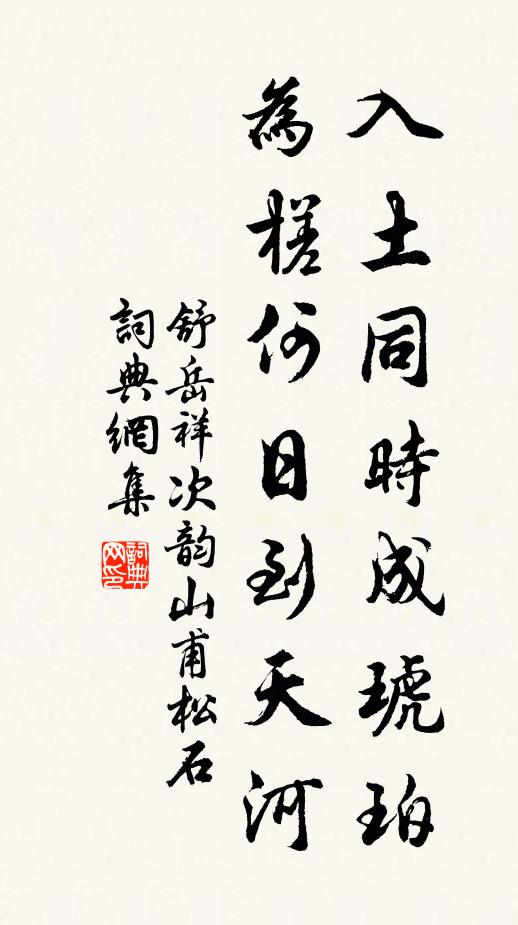 入土同時成琥珀
為槎何日到天河
舒岳祥次韵山甫松石
詞典網集
詞典
网印